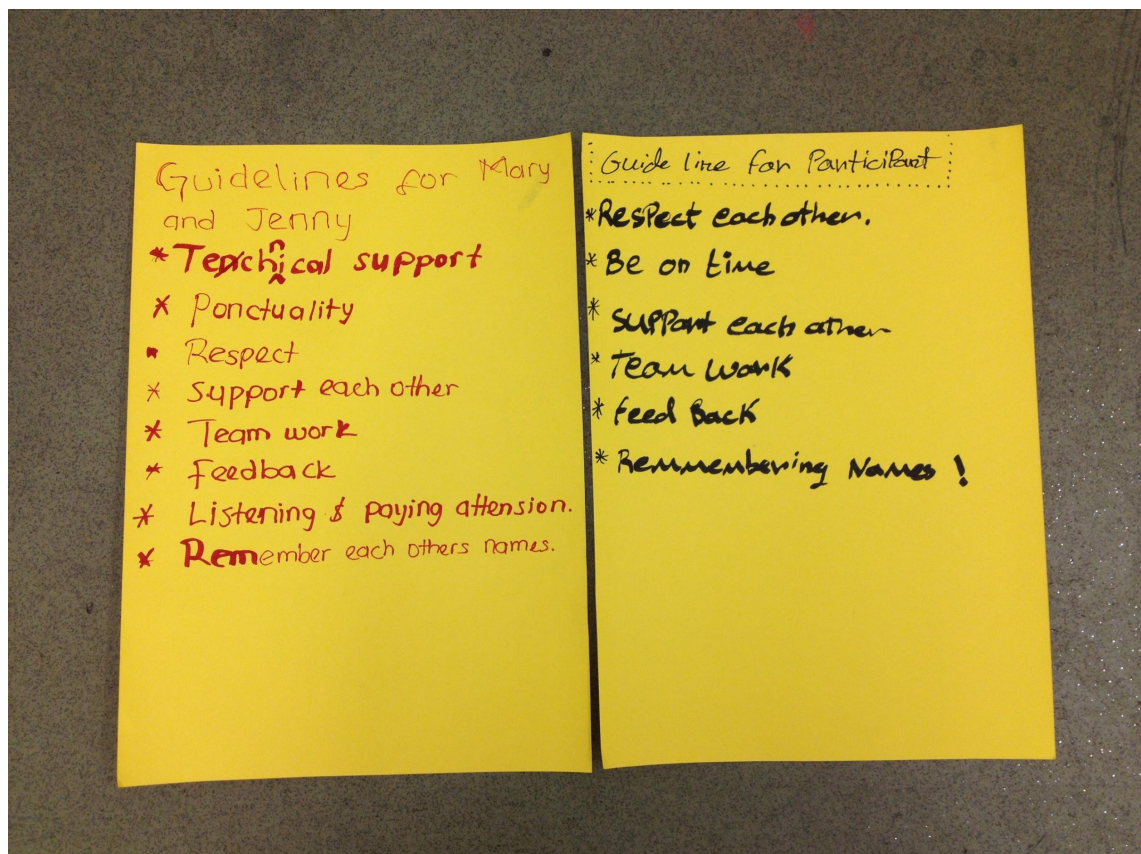 Guidelines for Mary
and Jenny
* Technical support
* Ponctuality
* Respect
* Support each other
* Team work
* feedback
* Listening & paying attension.
* Remember each others names.
Guide line for Participant
* Respect each other.
* Be on time
* Support each other
* Team work
* feed Back
* Remmembering Names !